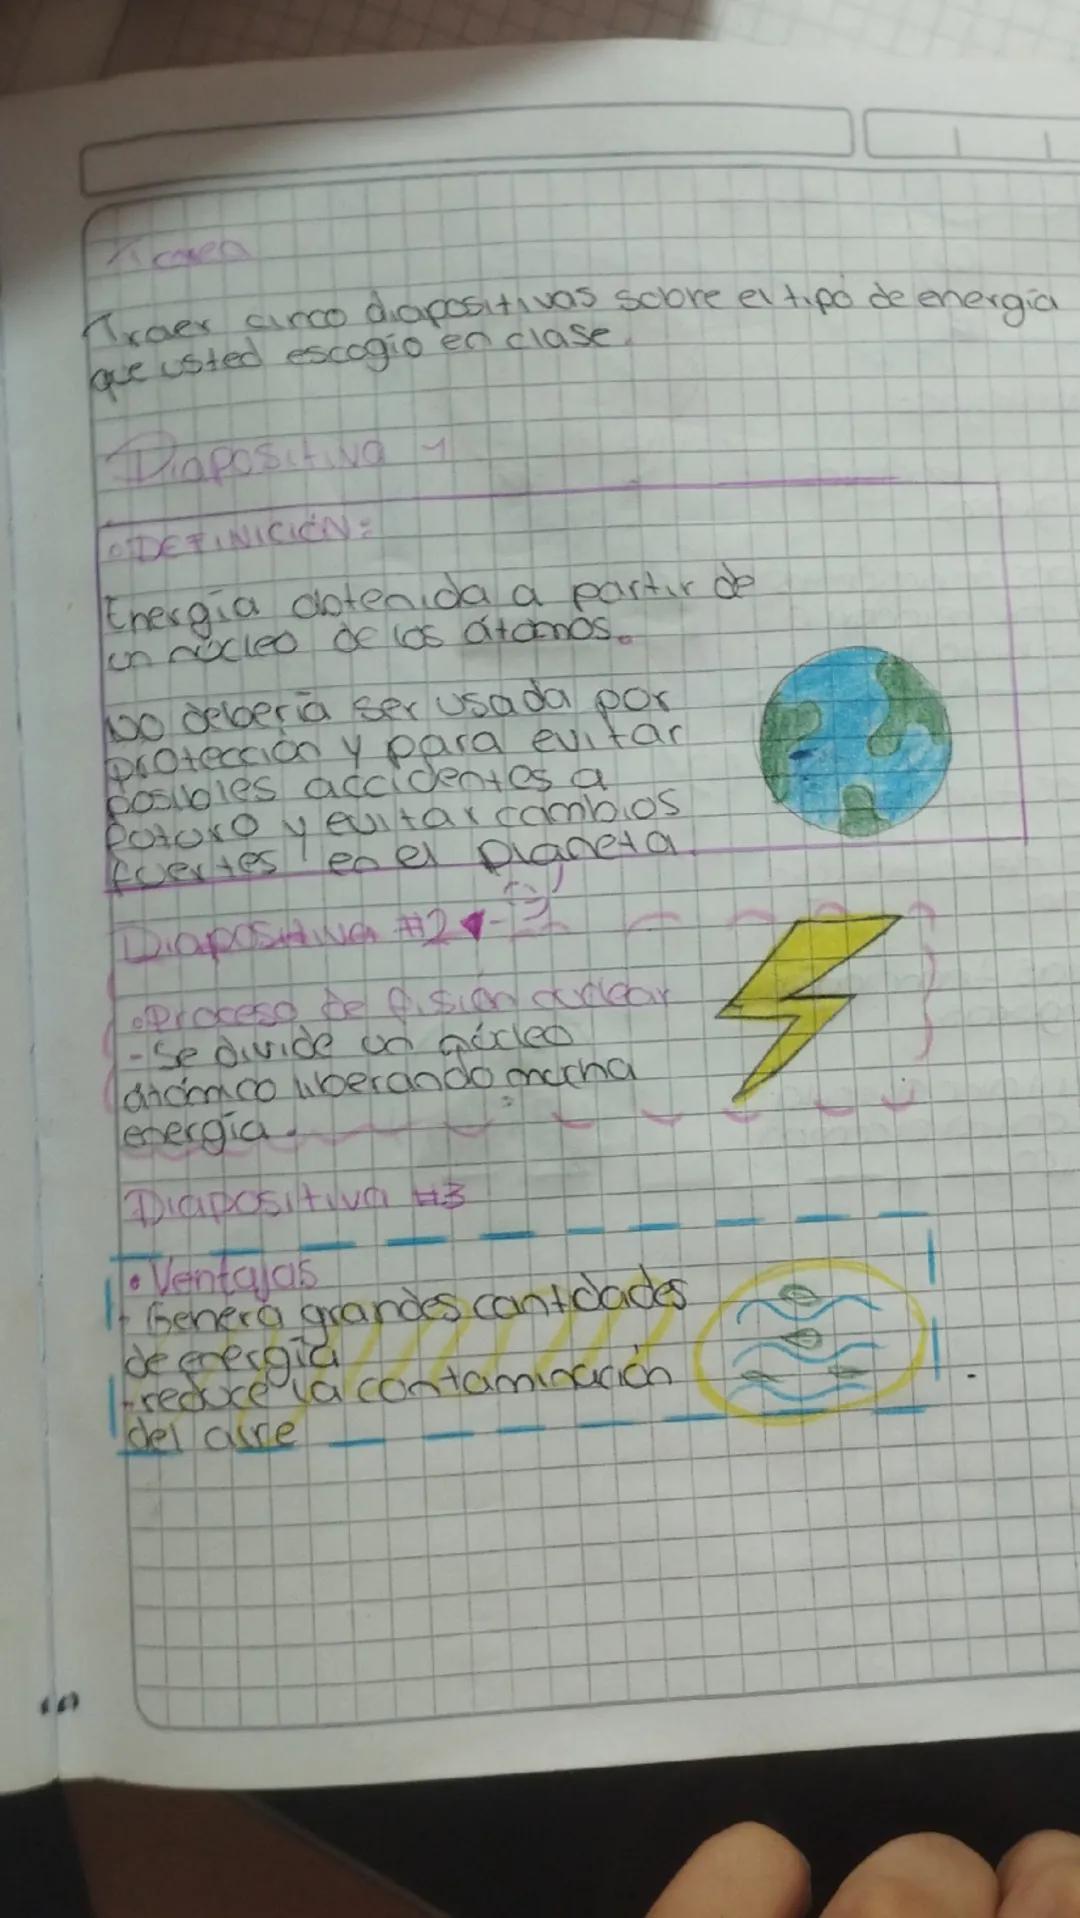 Tarea
Traer cinco diapositivas sobre el tipo de energía
que usted escogio en clase.
Diapositiva 1
• DEFINICIÓN:
Energía obtenida a partir de
un núcleo de los átomos.
No debería ser usada por
protección y para evitar
posibles accidentes a
futuro y evitar cambios
fuertes en el planeta
Diapositiva #2
• Proceso de fisión nuclear
- Se divide un núcleo
atómico liberando mucha
energía.
Diapositiva #3
• Ventajas
- Genera grandes cantidades
de energía
- reduce la contaminación
del aire